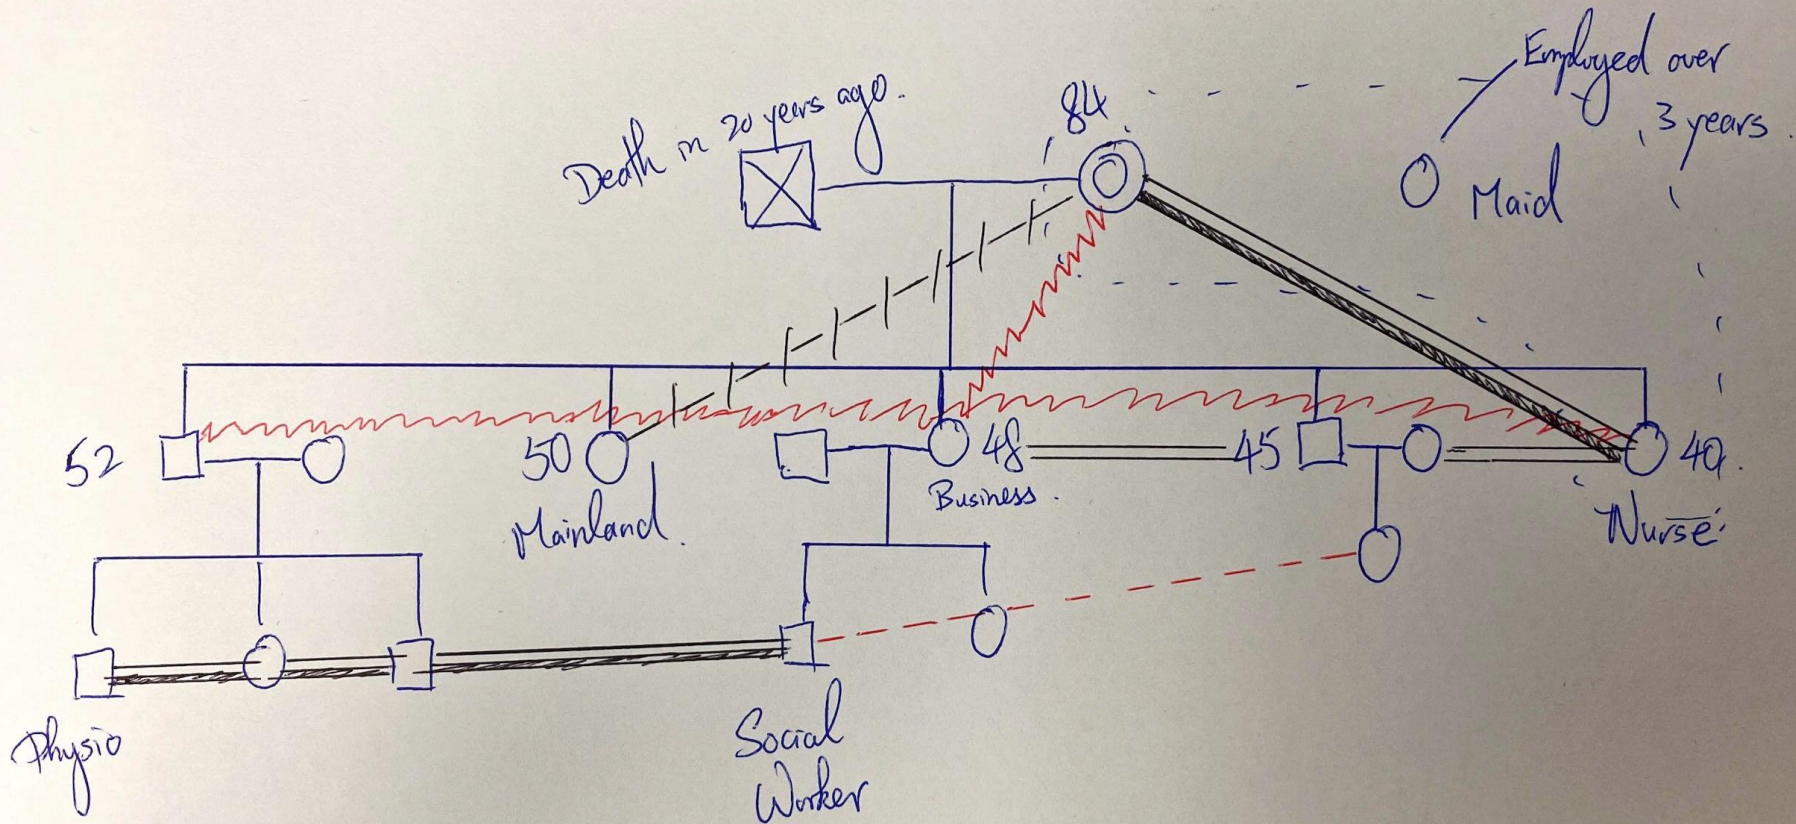 Death in 20 years ago.
84
Employed over
3 years.
Maid
52
50
Mainland.
48
Business.
45
40.
Nurse
Physio
Social
Worker